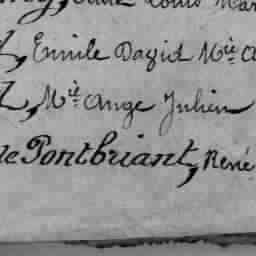 Louis Mar
, Emile David M^ie A
, M^ie Ange Julien
de Pontbriant, René